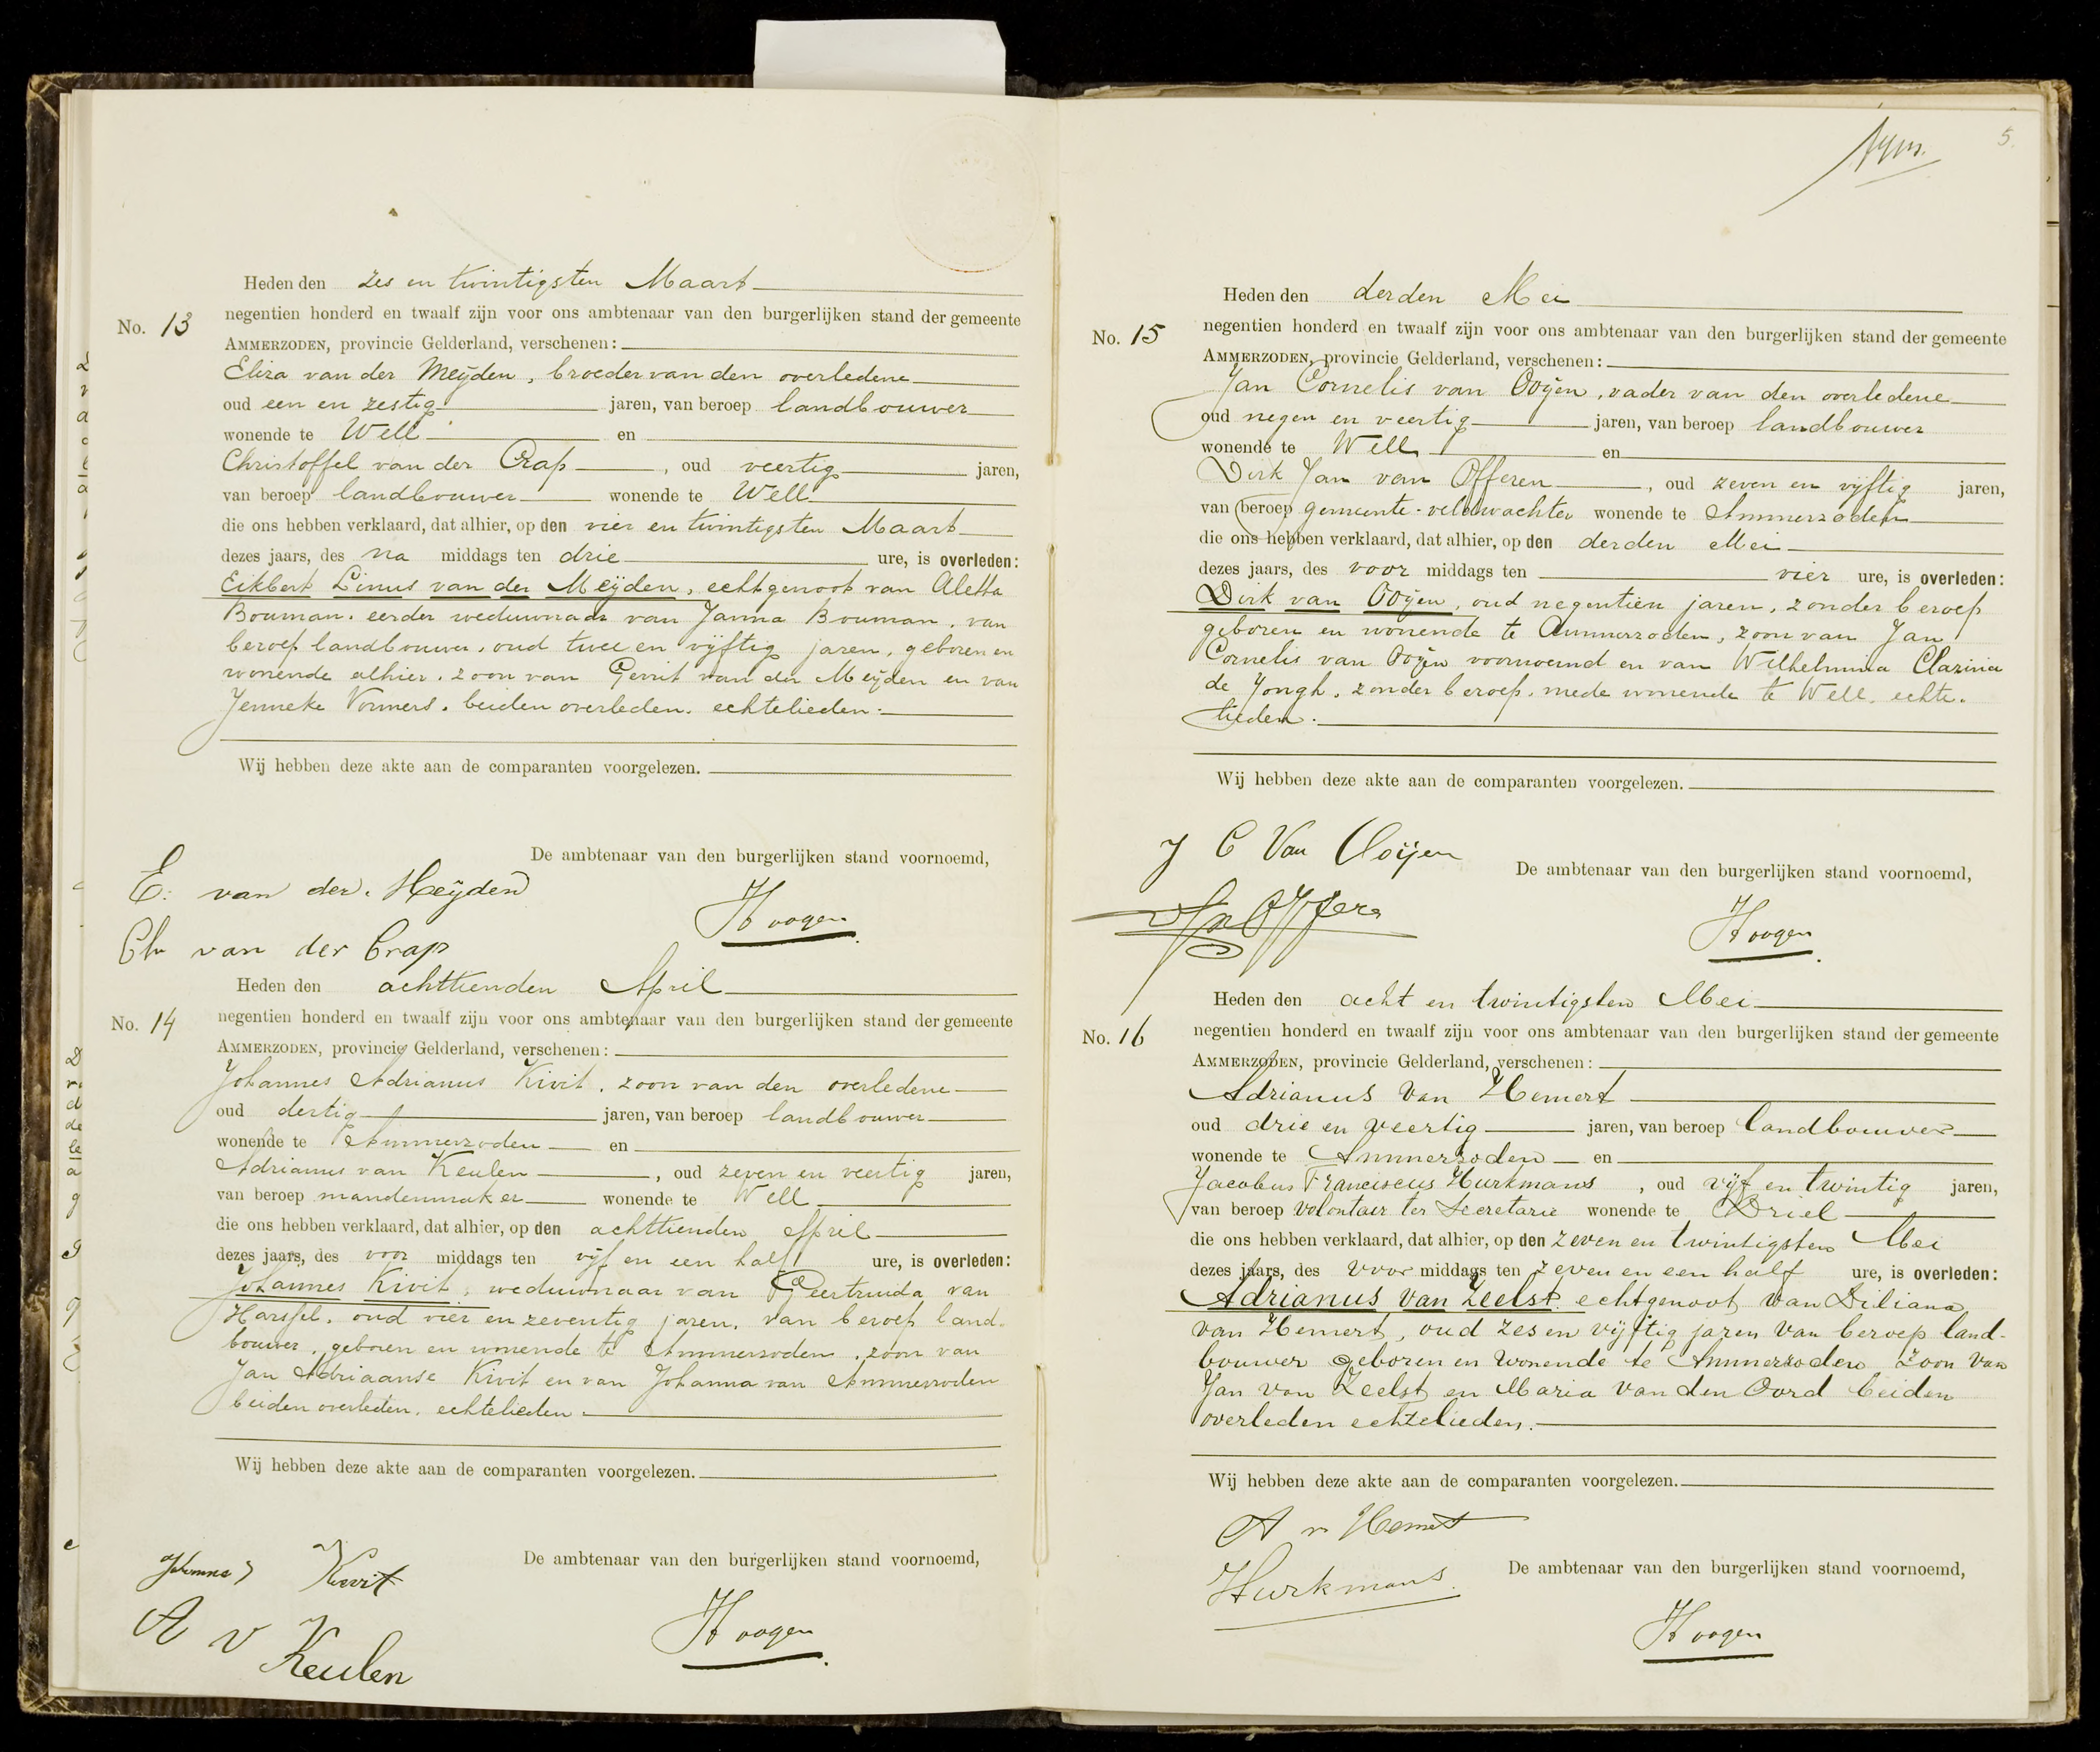 Heden den zes en twintigsten Maart
No. 13 negentien honderd en twaalf zijn voor ons ambtenaar van den burgerlijken stand der gemeente
AMMERZODEN, provincie Gelderland, verschenen:
Eliza van der Meijden, broeder van den overledene
oud een en zestig jaren, van beroep landbouwer
wonende te Well en
Christoffel van der Crap, oud veertig jaren,
van beroep landbouwer wonende te Well
die ons hebben verklaard, dat alhier, op den vier en twintigsten Maart
dezes jaars, des na middags ten drie ure, is overleden:
Eikbert Linus van der Meijden, echtgenoot van Aletta
Bouman, eerder weduwnaar van Janna Bouman, van
beroep landbouwer, oud twee en vijftig jaren, geboren en
wonende alhier, zoon van Gerrit van der Meijden en van
Jenneke Vermeers, beiden overleden, echtelieden.
Wij hebben deze akte aan de comparanten voorgelezen.
De ambtenaar van den burgerlijken stand voornoemd,
E. van der Meijden
Hoogen
Ch van der Crap
Heden den achttienden April
No. 14 negentien honderd en twaalf zijn voor ons ambtenaar van den burgerlijken stand der gemeente
AMMERZODEN, provincie Gelderland, verschenen:
Johannes Adrianus Kivit, zoon van den overledene
oud dertig jaren, van beroep landbouwer
wonende te Ammerzoden en
Adrianus van Keulen, oud zeven en veertig jaren,
van beroep mandenmaker wonende te Well
die ons hebben verklaard, dat alhier, op den achttienden April
dezes jaars, des voor middags ten vijf en een half ure, is overleden:
Johannes Kivit, weduwnaar van Geertruida van
Harssel, oud vier en zeventig jaren, van beroep land-
bouwer, geboren en wonende te Ammerzoden, zoon van
Jan Adriaanse Kivit en van Johanna van Ammerzoden
beiden overleden, echtelieden.
Wij hebben deze akte aan de comparanten voorgelezen.
De ambtenaar van den burgerlijken stand voornoemd,
Johannes Kivit
A v Keulen
Hoogen
5
Heden den derden Mei
No. 15 negentien honderd en twaalf zijn voor ons ambtenaar van den burgerlijken stand der gemeente
AMMERZODEN, provincie Gelderland, verschenen:
Jan Cornelis van Ooijen, vader van den overledene
oud negen en veertig jaren, van beroep landbouwer
wonende te Well en
Dirk Jan van Offeren, oud zeven en vijftig jaren,
van beroep gemeente-veldwachter wonende te Ammerzoden
die ons hebben verklaard, dat alhier, op den derden Mei
dezes jaars, des voor middags ten vier ure, is overleden:
Dirk van Ooijen, oud negentien jaren, zonder beroep
geboren en wonende te Ammerzoden, zoon van Jan
Cornelis van Ooijen voornoemd en van Wilhelmina Clazina
de Jongh, zonder beroep, mede wonende te Well, echte-
lieden.
Wij hebben deze akte aan de comparanten voorgelezen.
J C Van Ooijen
De ambtenaar van den burgerlijken stand voornoemd,
Hoogen
Heden den acht en twintigsten Mei
No. 16 negentien honderd en twaalf zijn voor ons ambtenaar van den burgerlijken stand der gemeente
AMMERZODEN, provincie Gelderland, verschenen:
Adrianus van Hemert
oud drie en veertig jaren, van beroep landbouwer
wonende te Ammerzoden en
Jacobus Franciscus Hurkmans, oud vijf en twintig jaren,
van beroep volontair ter Secretarie wonende te Driel
die ons hebben verklaard, dat alhier, op den zeven en twintigsten Mei
dezes jaars, des voor middags ten zeven en een half ure, is overleden:
Adrianus van Zeelst echtgenoot van Diliana
van Hemert, oud zes en vijftig jaren van beroep land-
bouwer geboren en wonende te Ammerzoden zoon van
Jan van Zeelst en Maria van den Oord beiden
overleden echtelieden.
Wij hebben deze akte aan de comparanten voorgelezen.
A v Hemert
De ambtenaar van den burgerlijken stand voornoemd,
Hurkmans
Hoogen